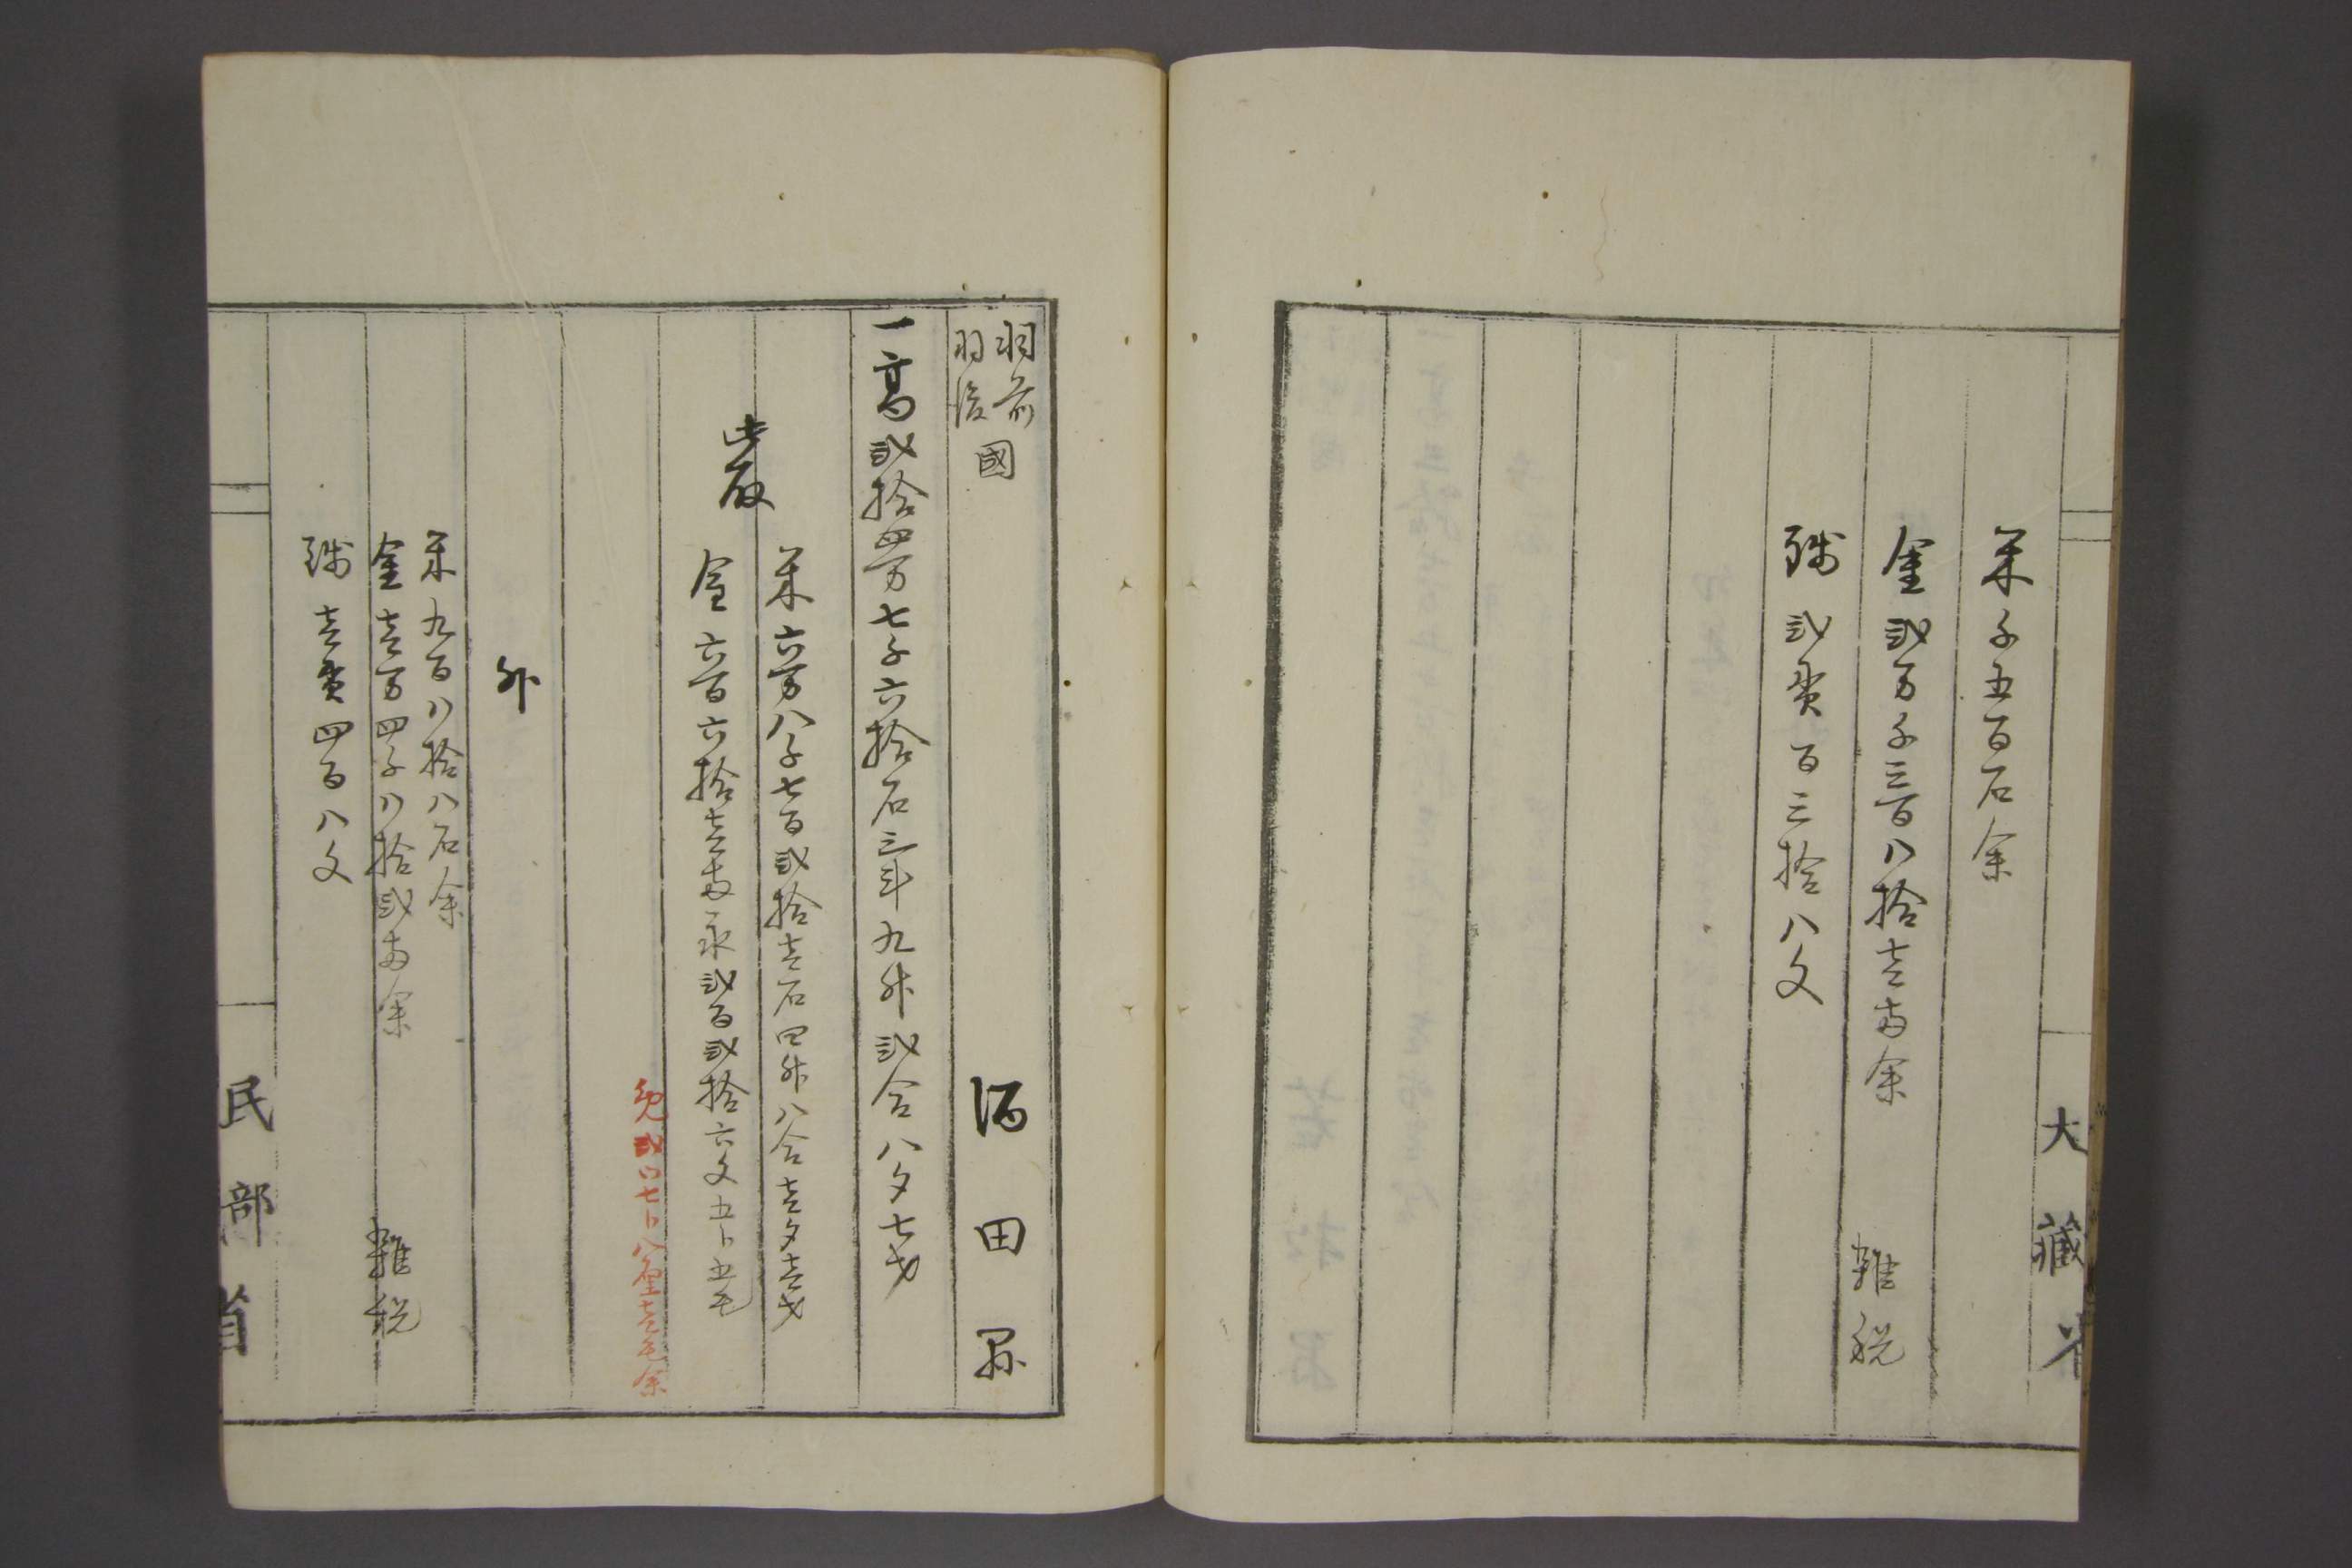 米千五百石余
金弐万千三百八拾壱両余
雑税
銭弐貫百三拾八文
大藏省
羽前
羽後
國
酒田縣
一高弐拾四万七千六拾石三斗九升弐合八夕七才
米六万八千七百弐拾壱石四升八合壱夕壱才
此取
金六百六拾壱両永弐百弐拾六文五卜五毛
免弐ツ七卜八厘壱毛余
外
米九百八拾八石余
金壱万四千八拾弐両余
雑税
銭壱貫四百八文
民部省